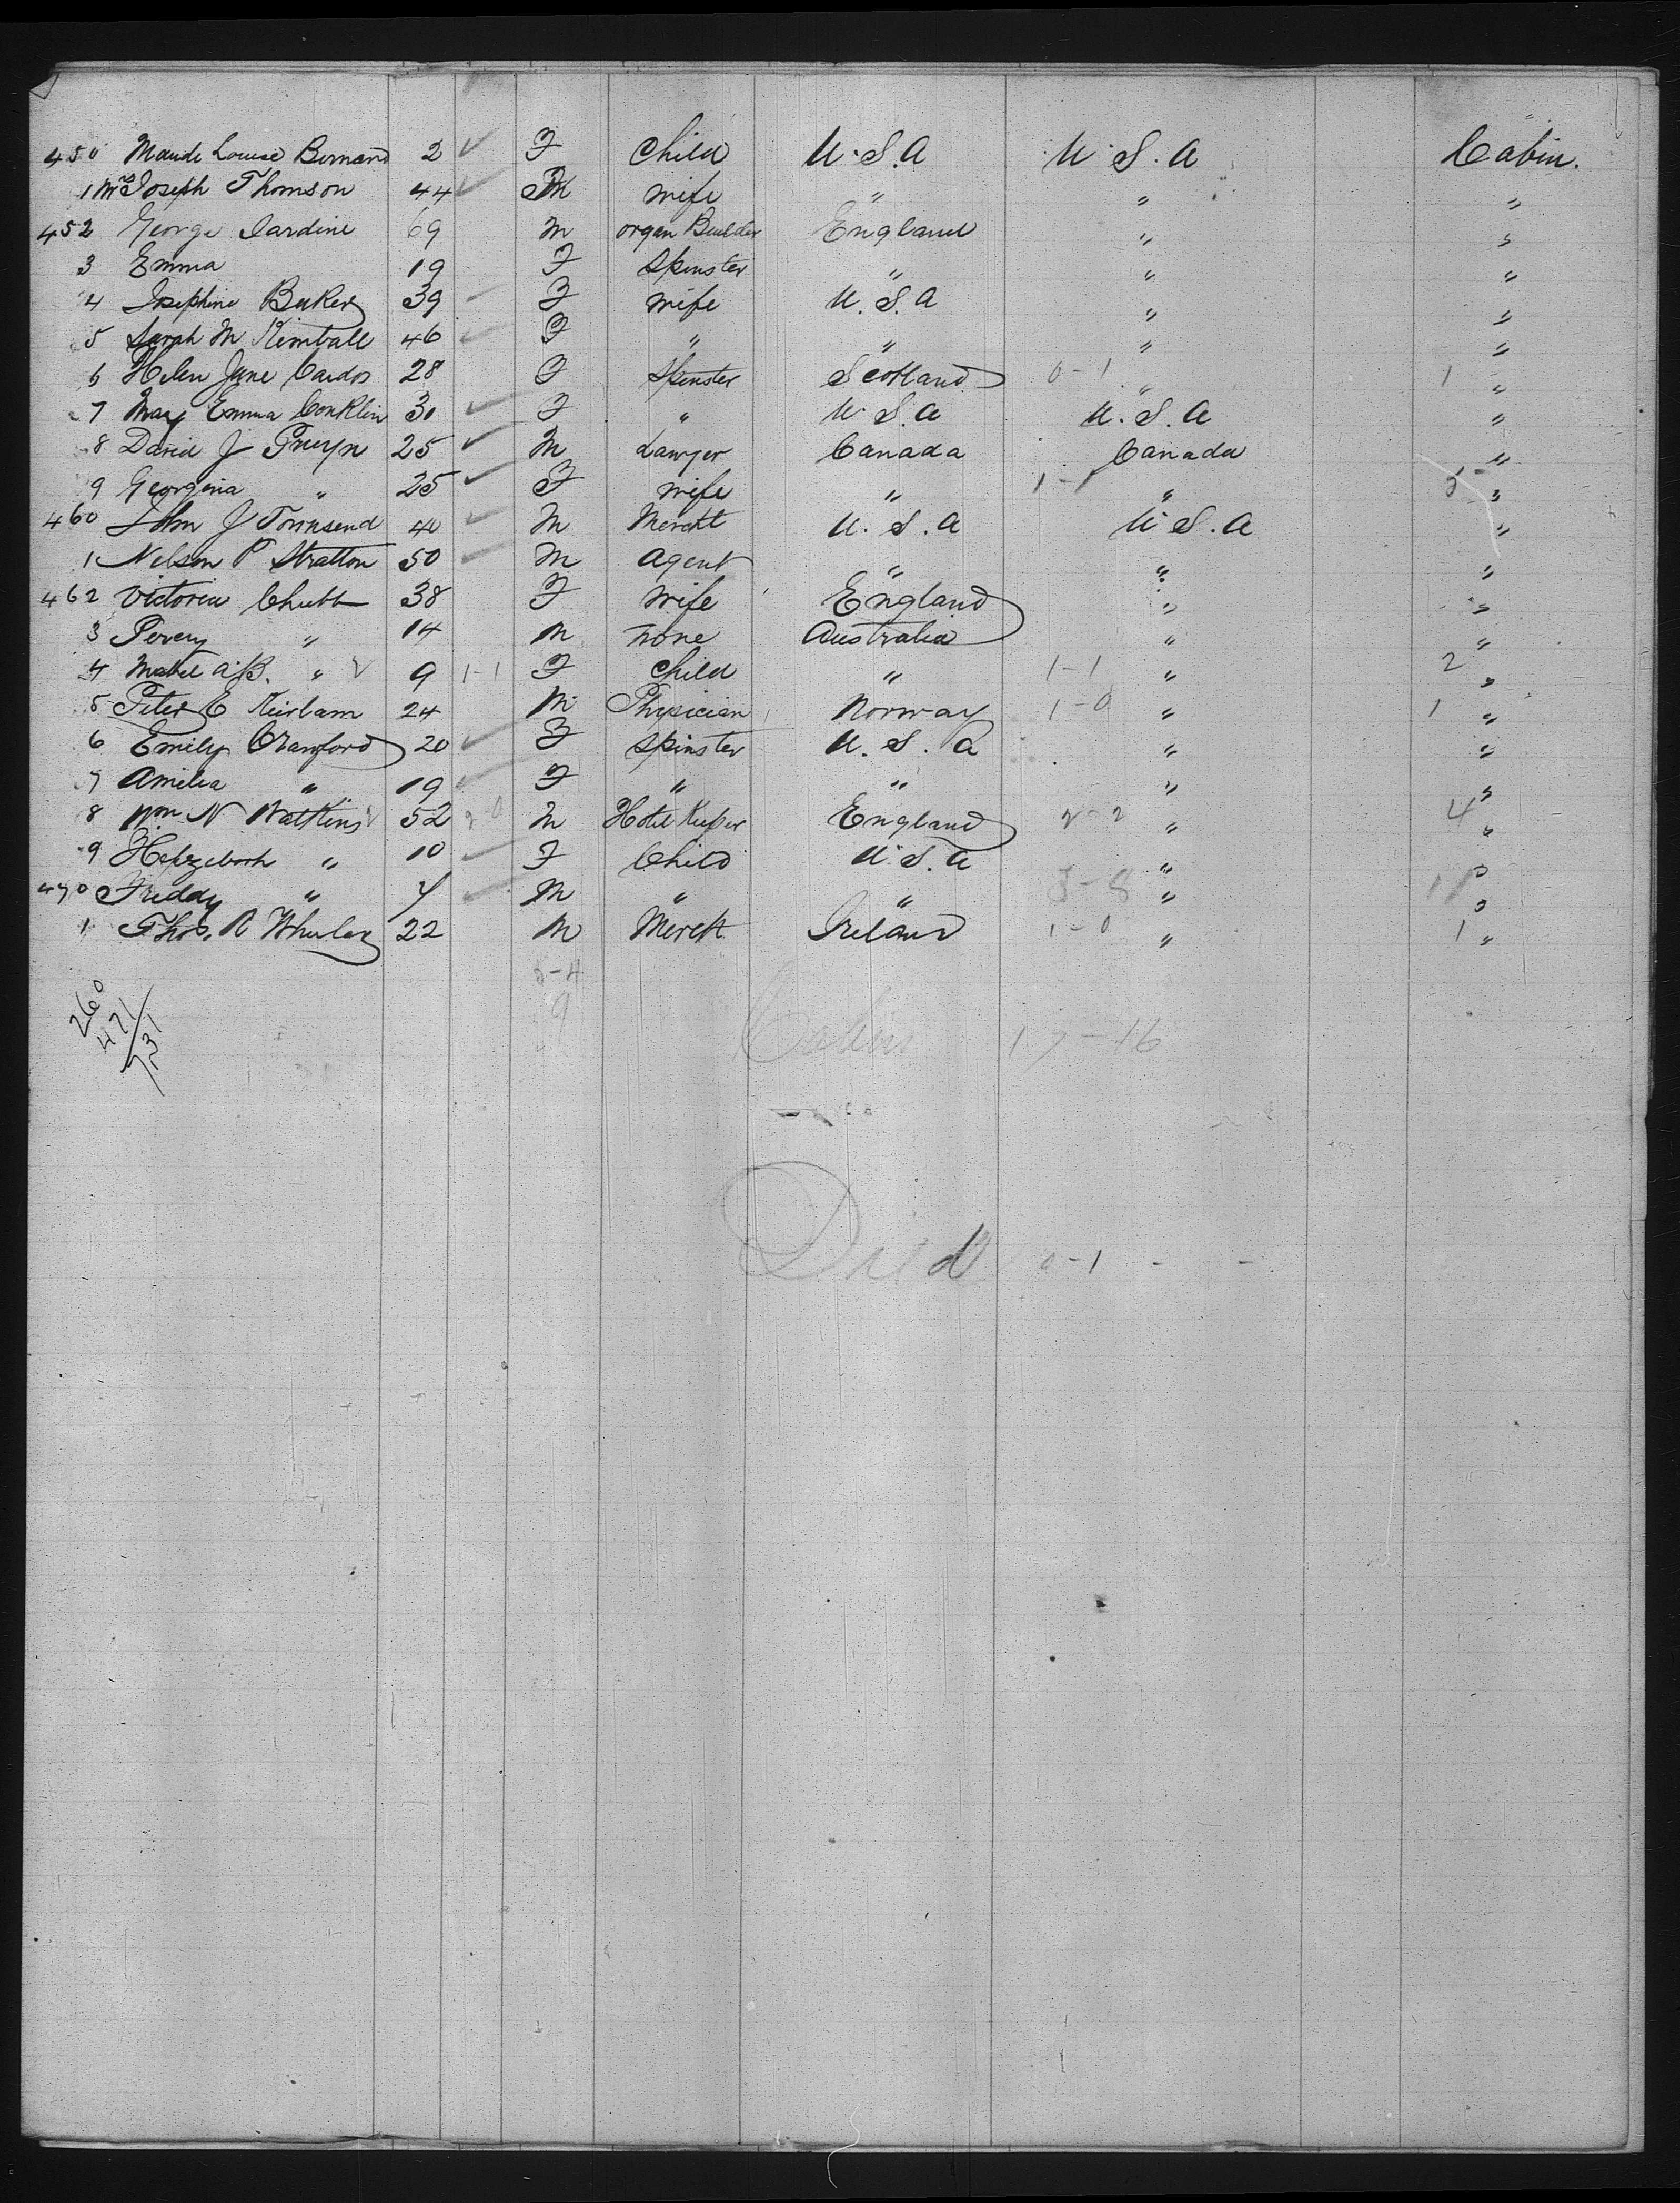 450 Maude Louise Bernard 2 ✓ F Child U.S.A U.S.A Cabin.
1 Mrs Joseph Thomson 44 ✓ wife " " "
452 George Jardine 69 M organ Builder England " "
3 Emma 19 F Spinster " " "
4 Josephine Baker 39 ✓ F wife U.S.A " "
5 Sarah M Kimball 46 ✓ F " " " "
6 Helen Jane 28 F Spinster Scotland 0-1 " 1 "
7 May Emma Conklin 30 ✓ F " U.S.A U.S.A "
8 David J Pruyn 25 ✓ M Lawyer Canada Canada "
9 Georgina " 25 ✓ F wife " 1-1 " "
460 John J Townsend 40 ✓ M Mercht U.S.A U.S.A "
1 Nelson P Stratton 50 ✓ M Agent " " "
462 Victoria Chubb 38 F Wife England " "
3 Percy " 14 M none Australia " "
4 Mabel A.B. " ✓ 9 1-1 F Child " 1-1 " 2 "
5 Peter E 24 M Physician Norway 1-0 " 1 "
6 Emily Crawford 20 ✓ F Spinster U.S.A " "
7 Amelia " 19 ✓ F " " " "
8 Wm N Watkins ✓ 52 2-0 M Hotel Keeper England 2-2 " 4 "
9 Hepzebah " 10 ✓ F Child U.S.A " "
470 Freddy " ✓ M " " "  "
1 Thos. R Wheeler 22 M Mercht Ireland 1-0 " 1 "
5-4
9
260
471
731
Cabin 17-16
Died 0-1 - -